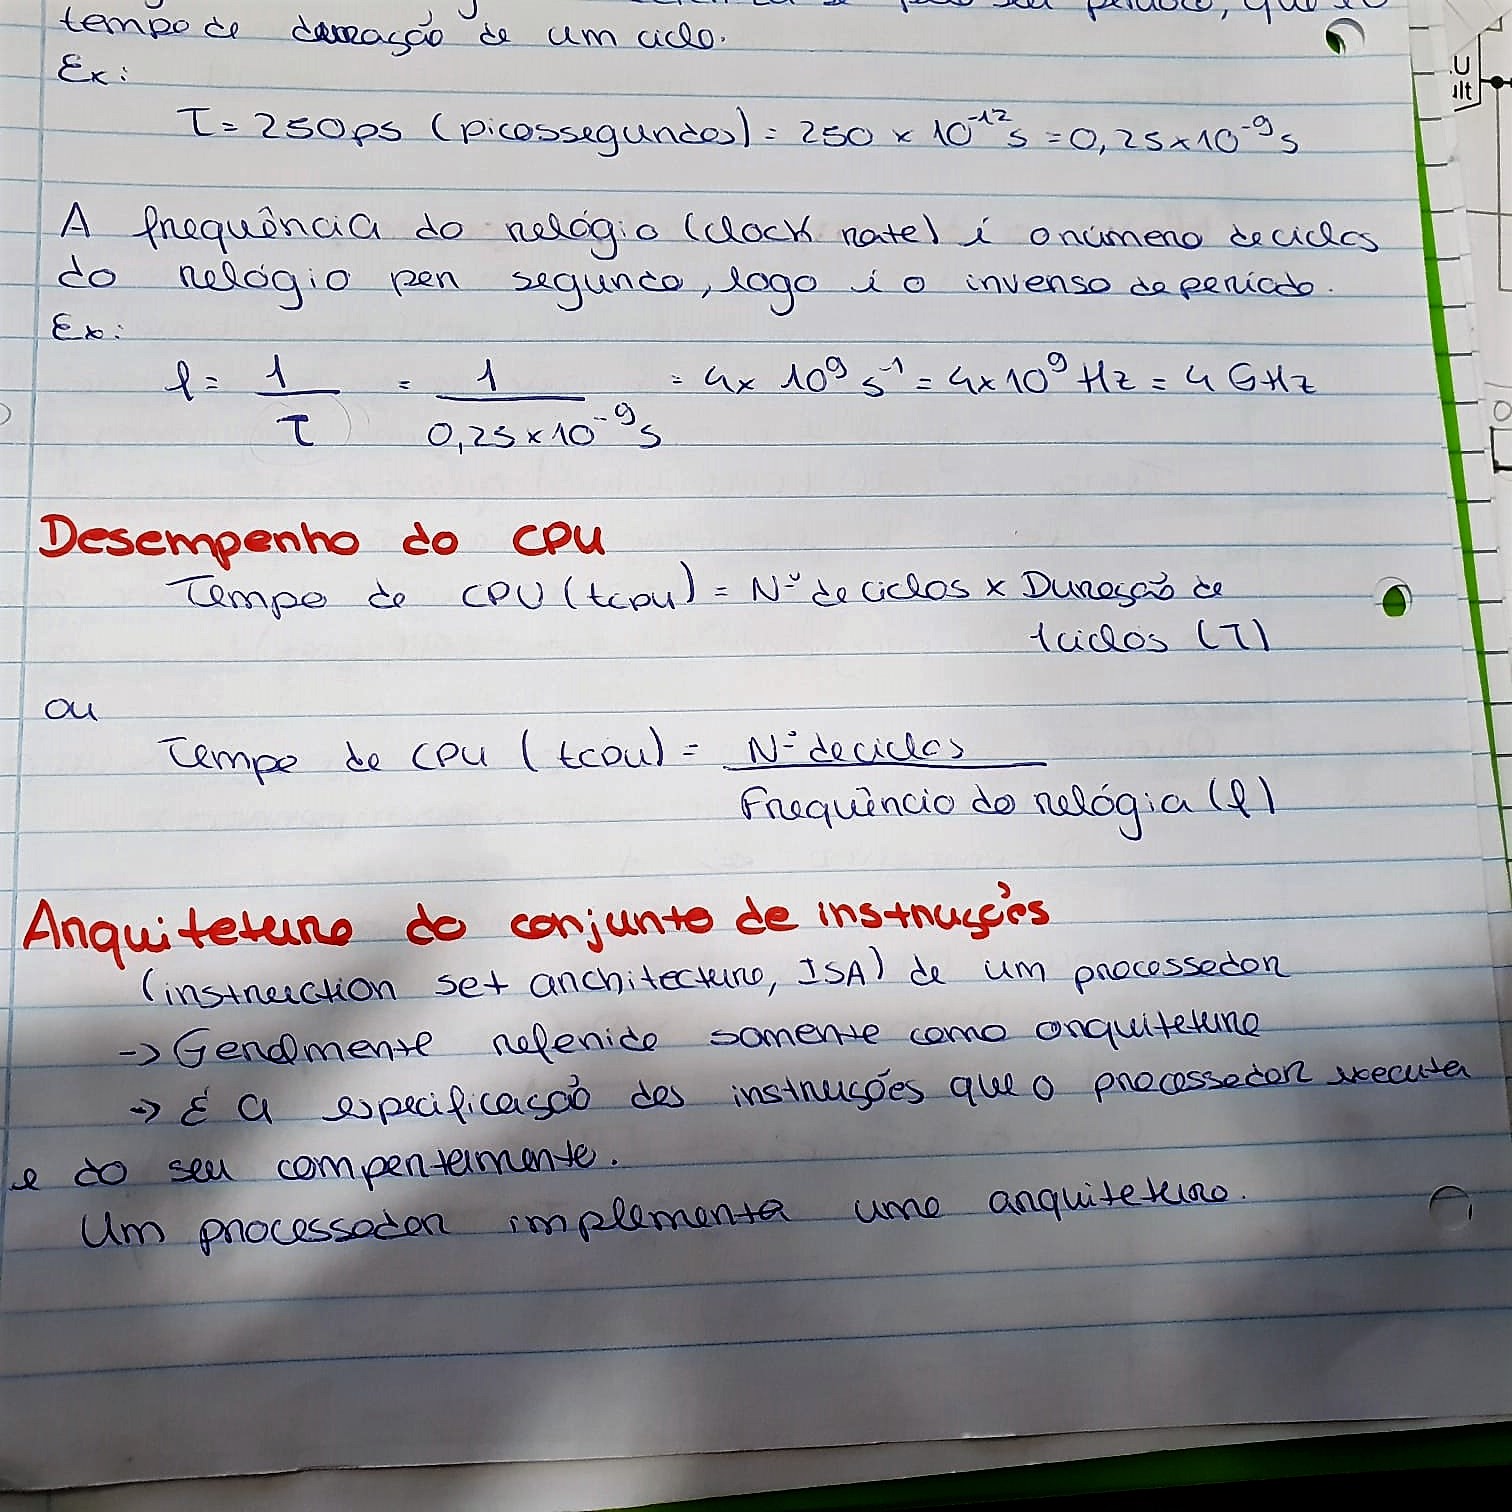 se pelo seu período, que é o
tempo de duração de um ciclo.
Ex:
T = 250ps (picossegundos) = 250 × 10⁻¹² s = 0,25×10⁻⁹ s
A frequência do relógio (clock rate) é o número de ciclos
do relógio por segundo, logo é o inverso de período.
Ex:
f = 1/T = 1/(0,25×10⁻⁹ s) = 4× 10⁹ s⁻¹ = 4×10⁹ Hz = 4 GHz
Desempenho do CPU
Tempo de CPU (tcpu) = Nº de ciclos × Duração de
1 ciclos (T)
ou
Tempo de CPU (tcpu) = Nº de ciclos
Frequência do relógia (f)
Arquitetura do conjunto de instruções
(instruction set architecture, ISA) de um processador
-> Geralmente referida somente como arquitetura
-> É a especificação das instruções que o processador executa
e do seu comportamento.
Um processador implementa uma arquitetura.
U
ult